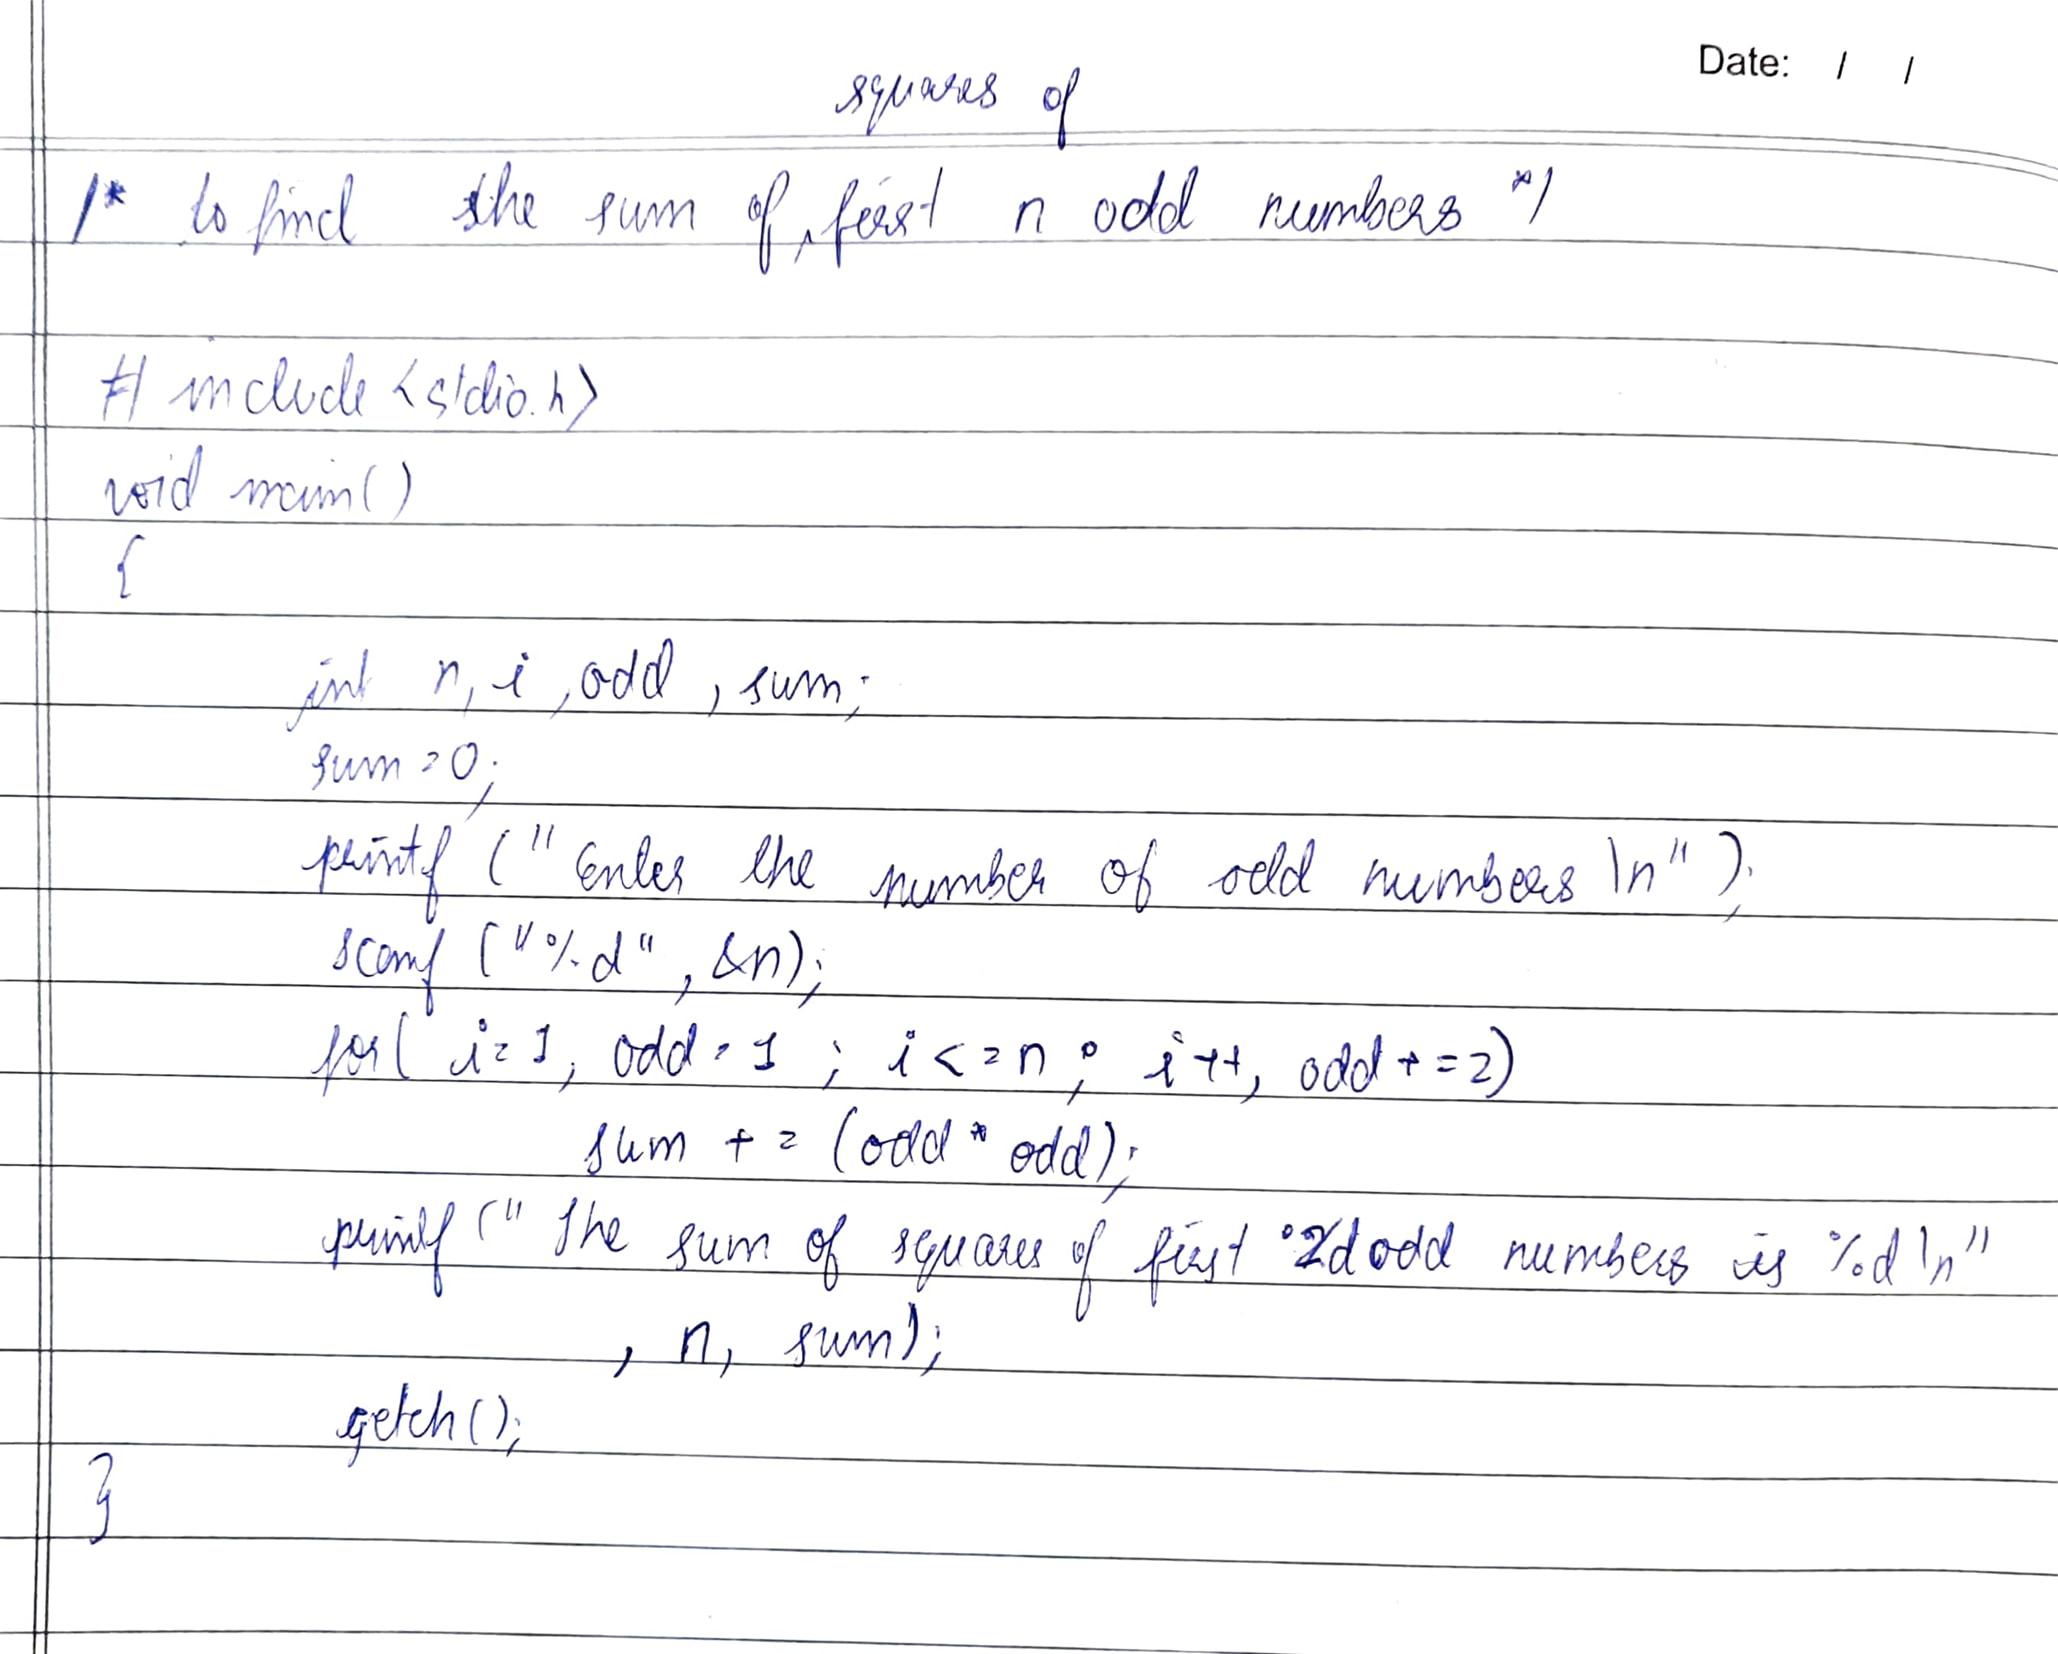 Date: / /
squares of
/* to find the sum of ^ first n odd numbers */
# include <stdio.h>
void main()
{
int n, i, odd, sum;
sum = 0;
printf (" Enter the number of odd numbers \n" );
scanf ("%d", &n);
for( i=1, odd=1 ; i<=n ; i++, odd+=2)
sum += (odd * odd);
printf (" The sum of squares of first %d odd numbers is %d \n"
, n, sum);
getch();
}